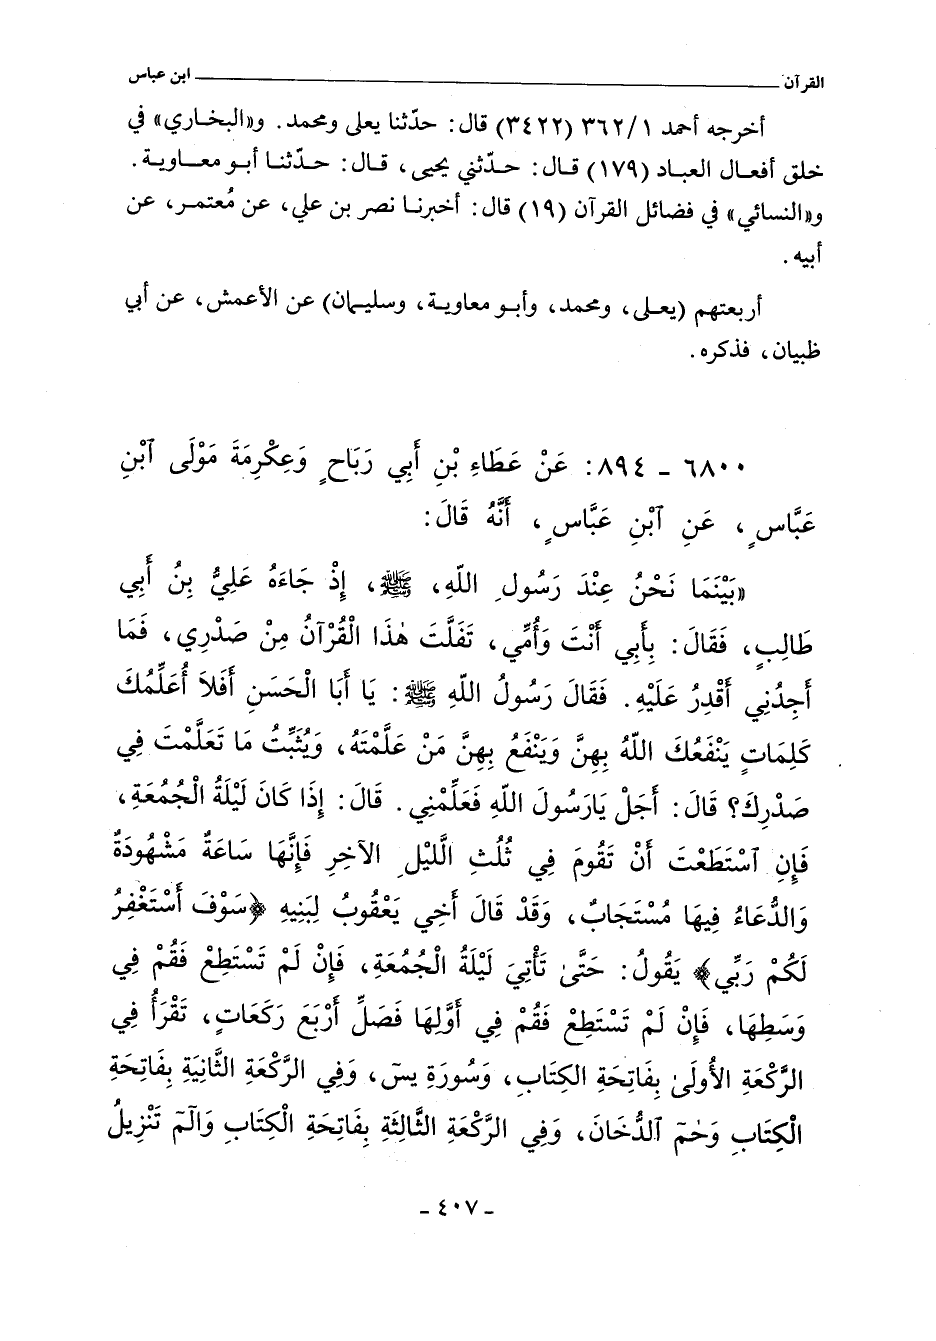 القرآن ــــــــــــــــــــ ابن عباس
أخرجه أحمد ٣٦٢/١ (٣٤٢٢) قال: حدّثنا يعلى ومحمد. و«البخاري» في
خلق أفعال العباد (١٧٩) قال: حدّثني يحيى، قال: حدّثنا أبو معاوية.
و«النسائي» في فضائل القرآن (١٩) قال: أخبرنا نصر بن علي، عن مُعتمر، عن
أبيه.
أربعتهم (يعلى، ومحمد، وأبو معاوية، وسليمان) عن الأعمش، عن أبي
ظبيان، فذكره.
٦٨٠٠ - ٨٩٤: عَنْ عَطَاءِ بْنِ أَبِي رَبَاحٍ وَعِكْرِمَةَ مَوْلَى ٱبْنِ
عَبَّاسٍ، عَنِ ٱبْنِ عَبَّاسٍ، أَنَّهُ قَالَ:
«بَيْنَمَا نَحْنُ عِنْدَ رَسُولِ اللّهِ، ﷺ، إِذْ جَاءَهُ عَلِيُّ بْنُ أَبِي
طَالِبٍ، فَقَالَ: بِأَبِي أَنْتَ وَأُمِّي، تَفَلَّتَ هٰذَا الْقُرْآنُ مِنْ صَدْرِي، فَمَا
أَجِدُنِي أَقْدِرُ عَلَيْهِ. فَقَالَ رَسُولُ اللّهِ ﷺ: يَا أَبَا الْحَسَنِ أَفَلاَ أُعَلِّمُكَ
كَلِمَاتٍ يَنْفَعُكَ اللّهُ بِهِنَّ وَيَنْفَعُ بِهِنَّ مَنْ عَلَّمْتَهُ، وَيُثَبِّتُ مَا تَعَلَّمْتَ فِي
صَدْرِكَ؟ قَالَ: أَجَلْ يَارَسُولَ اللّهِ فَعَلِّمْنِي. قَالَ: إِذَا كَانَ لَيْلَةُ الْجُمُعَةِ،
فَإِنِ ٱسْتَطَعْتَ أَنْ تَقُومَ فِي ثُلُثِ الَّليْلِ الآخِرِ فَإِنَّهَا سَاعَةٌ مَشْهُودَةٌ
وَالدُّعَاءُ فِيهَا مُسْتَجَابٌ، وَقَدْ قَالَ أَخِي يَعْقُوبُ لِبَنِيهِ ﴿سَوْفَ أَسْتَغْفِرُ
لَكُمْ رَبِّي﴾ يَقُولُ: حَتَّىٰ تَأْتِيَ لَيْلَةُ الْجُمُعَةِ، فَإِنْ لَمْ تَسْتَطِعْ فَقُمْ فِي
وَسَطِهَا، فَإِنْ لَمْ تَسْتَطِعْ فَقُمْ فِي أَوَّلِهَا فَصَلِّ أَرْبَعَ رَكَعَاتٍ، تَقْرَأُ فِي
الرَّكْعَةِ الأُولَىٰ بِفَاتِحَةِ الكِتَابِ، وَسُورَةِ يسَ، وَفِي الرَّكْعَةِ الثَّانِيَةِ بِفَاتِحَةِ
الْكِتَابِ وَحٰمۤ ٱلدُّخَانَ، وَفِي الرَّكْعَةِ الثَّالِثَةِ بِفَاتِحَةِ الْكِتَابِ وَالۤمۤ تَنْزِيلُ
- ٤٠٧ -